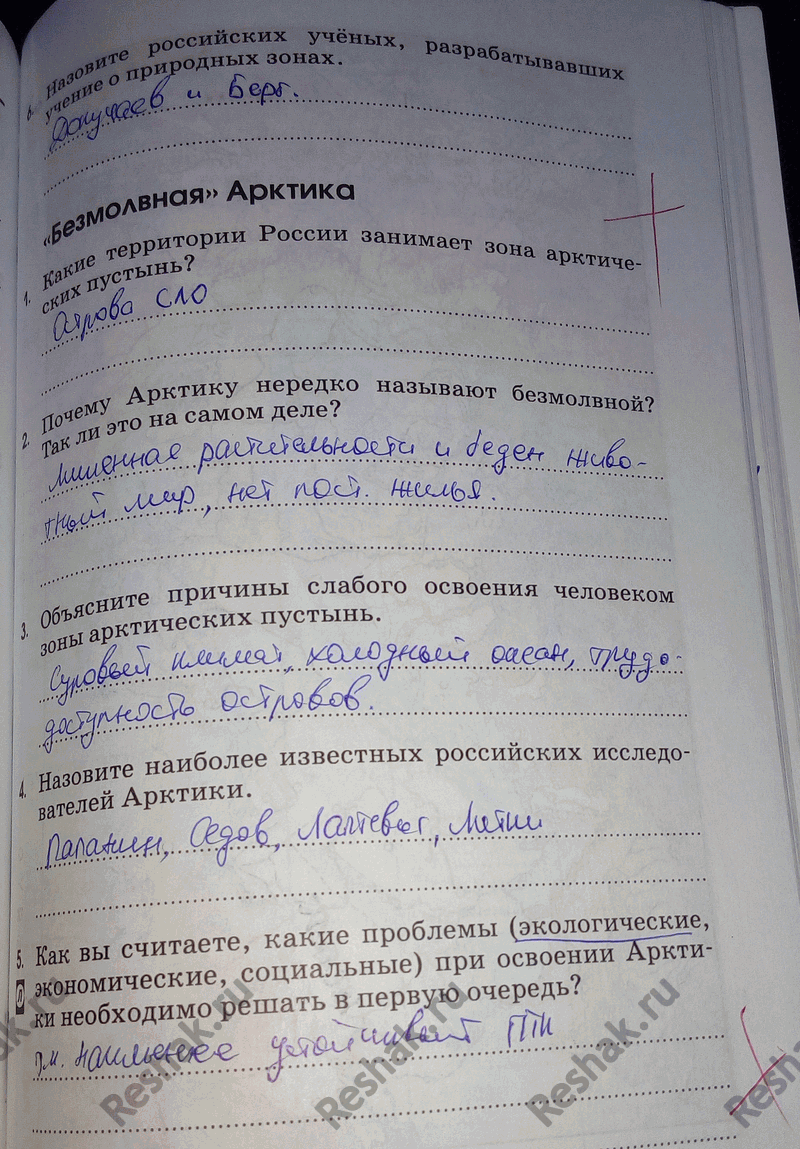 6. Назовите российских учёных, разрабатывавших
учение о природных зонах.
Докучаев и Берг.
«Безмолвная» Арктика
1. Какие территории России занимает зона арктиче-
ских пустынь?
Острова СЛО
2. Почему Арктику нередко называют безмолвной?
Так ли это на самом деле?
Лишенная растительности и беден живо-
тный мир, нет пост. жилья.
3. Объясните причины слабого освоения человеком
зоны арктических пустынь.
Суровый климат, холодный океан, трудо-
доступность островов.
4. Назовите наиболее известных российских исследо-
вателей Арктики.
Папанин, Седов, Лаптевы, Литке
5. Как вы считаете, какие проблемы (экологические,
экономические, социальные) при освоении Аркти-
ки необходимо решать в первую очередь?
наименее устойчивый ПТК
Reshak.ru Reshak.ru Reshak.ru Reshak.ru Reshak.ru